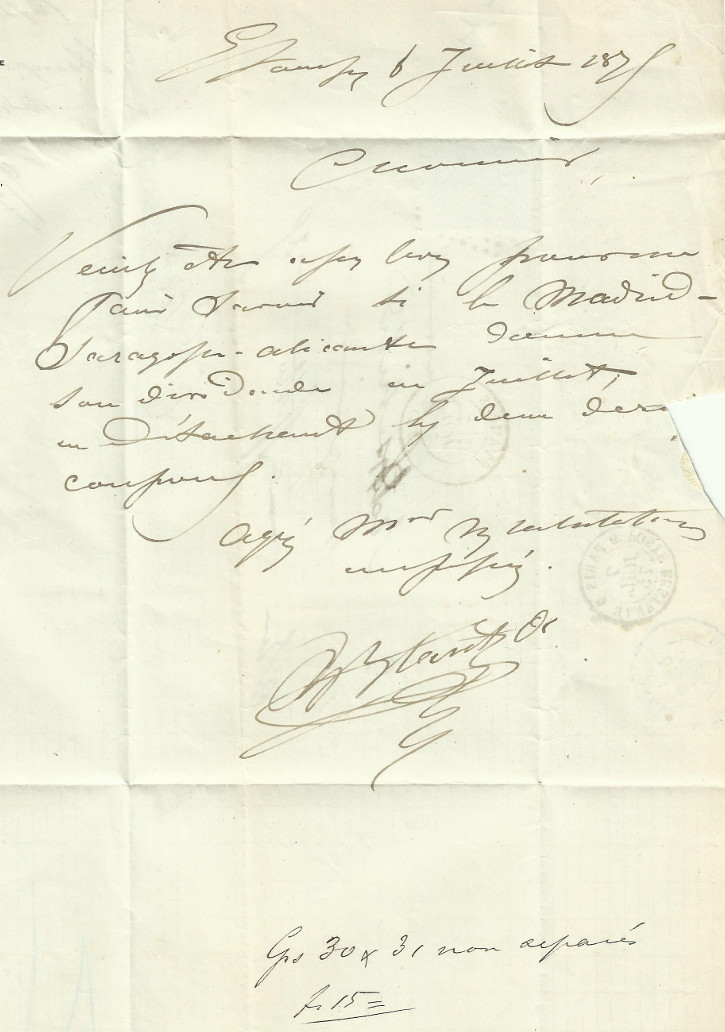 Etampes 6 Juillet 1875
Monsieur,
Veuillez être assez bon pour me
faire savoir si le Madrid-
Saragosse-alicante donne
son dividende en Juillet,
en détachant les deux der
coupons.
Agréez Mr mes salutations
empressées.
Cps 30 & 31 non séparés
fr 15 =